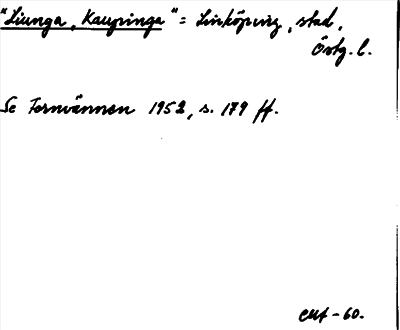 "Liunga, Kaupinga" = Linköping, stad,
Östg. l.
Se Fornvännen 1952, s. 179 ff.
CMA - 60.